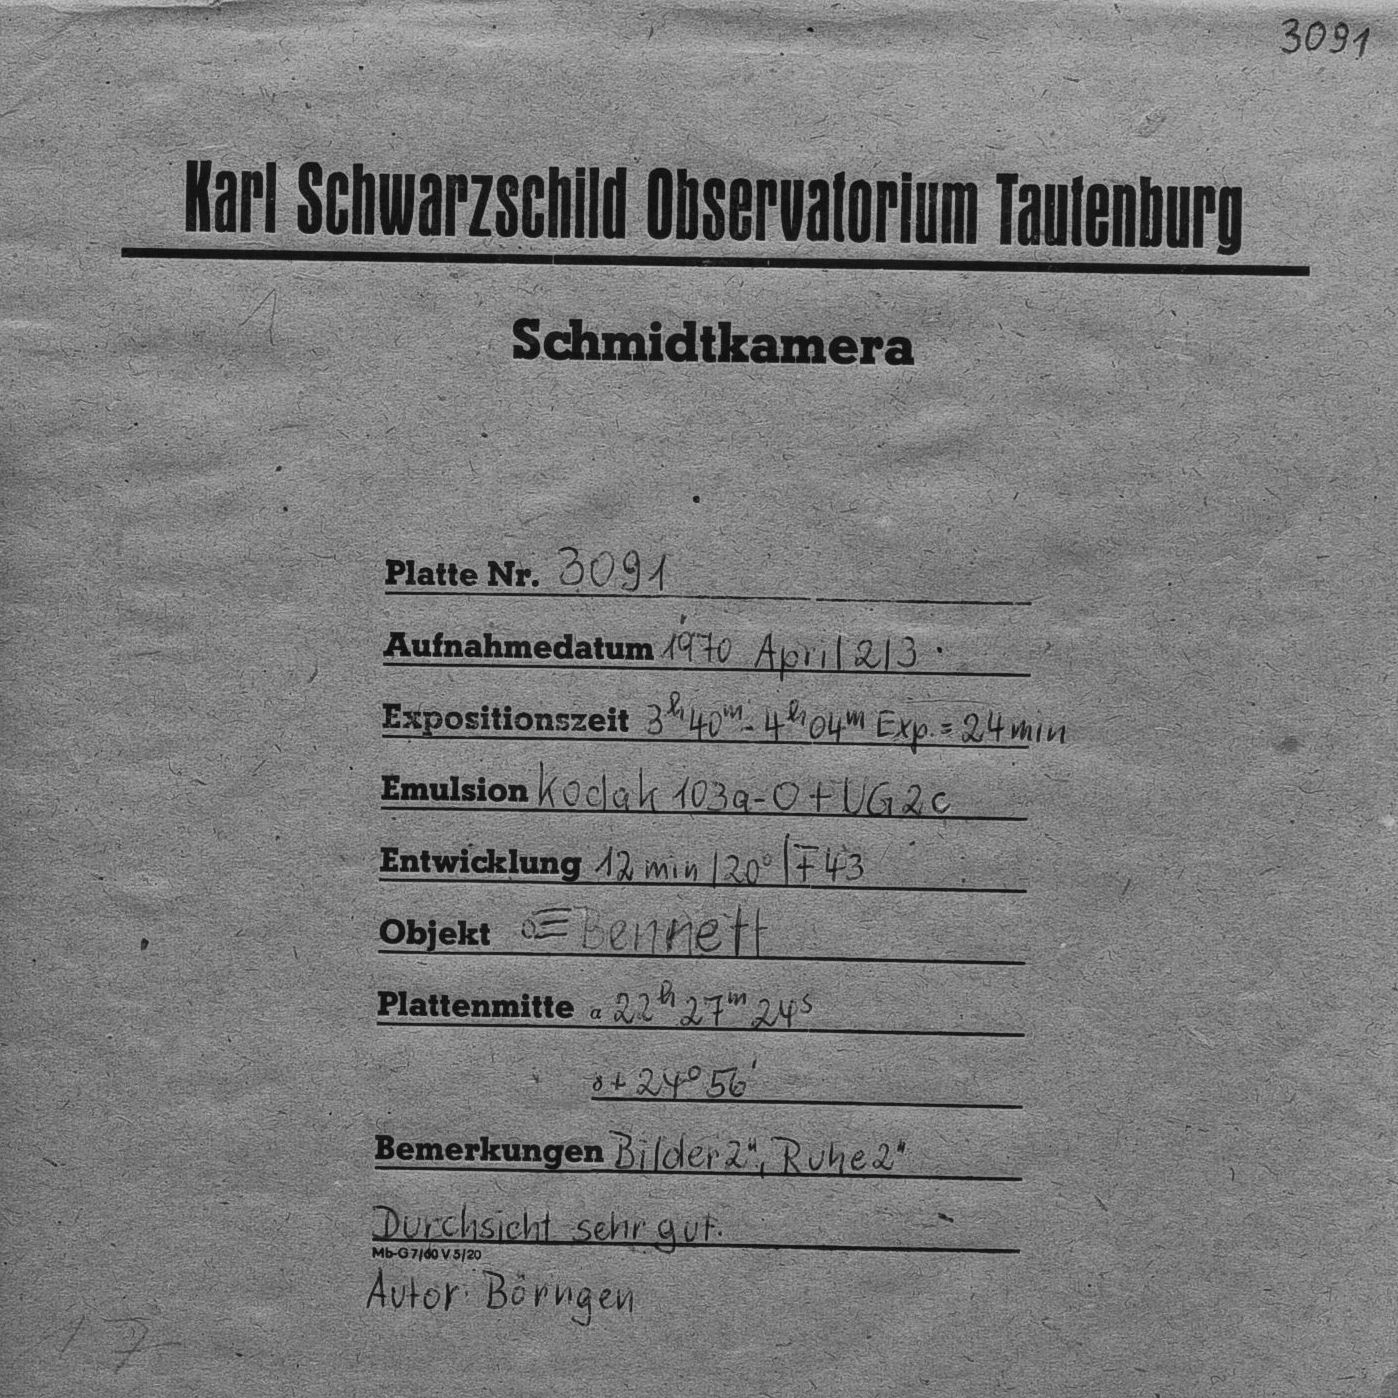 3091
Karl Schwarzschild Observatorium Tautenburg
Schmidtkamera
Platte Nr. 3091
Aufnahmedatum 1970 April 2/3.
Expositionszeit 3h 40m - 4h 04m Exp. = 24 min
Emulsion Kodak 103a-O + UG2c
Entwicklung 12 min /20° / F 43
Objekt Bennett
Plattenmitte α 22h 27m 24s
δ + 24° 56'
Bemerkungen Bilder 2", Ruhe 2"
Durchsicht sehr gut.
Mb-G 7/60 V 5/20
Autor: Börngen